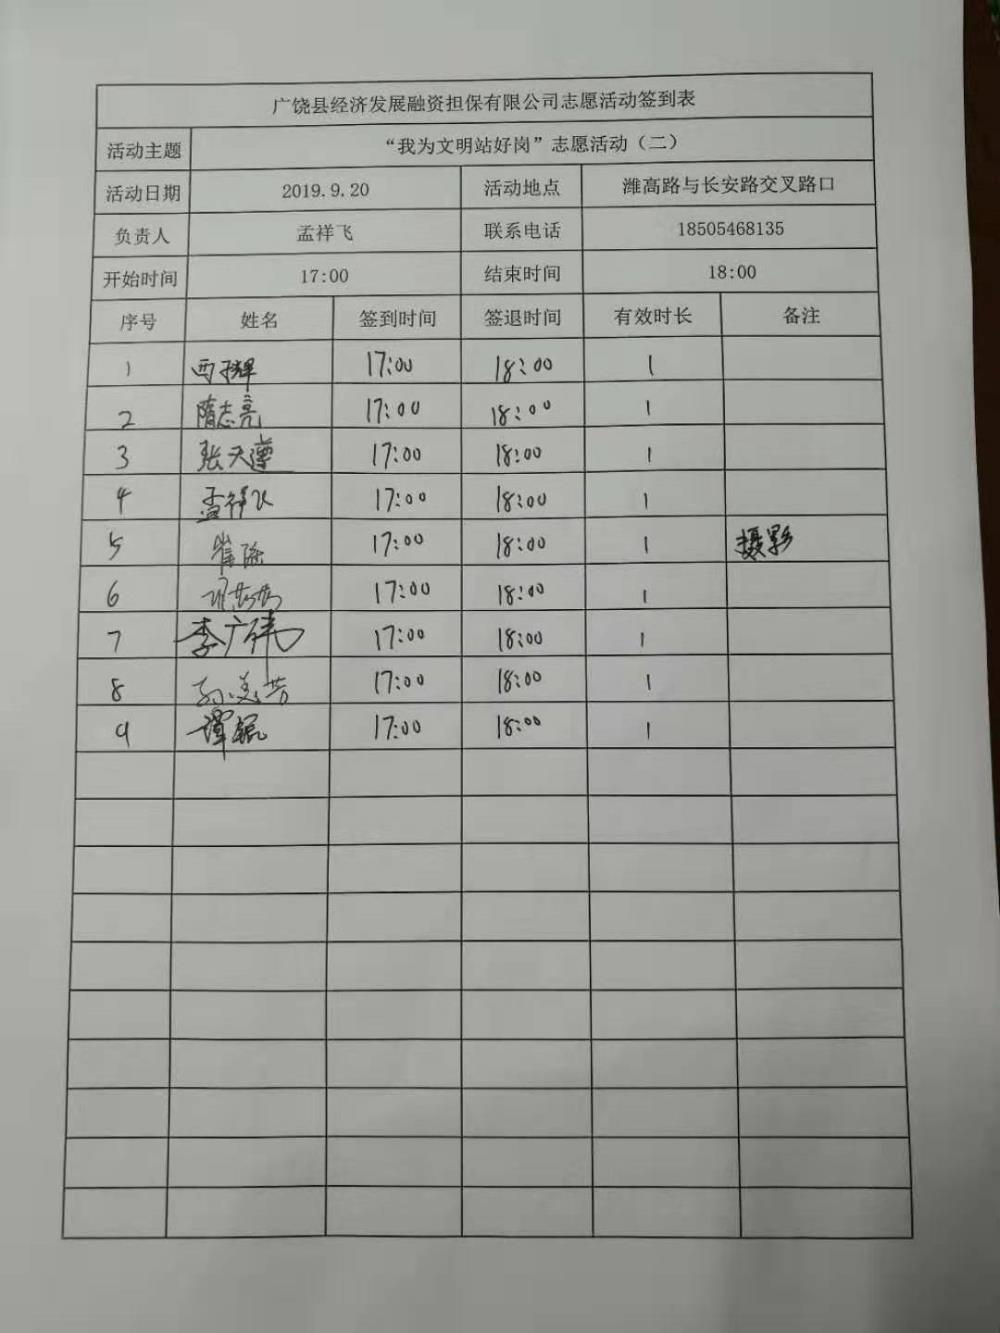 广饶县经济发展融资担保有限公司志愿活动签到表
活动主题 “我为文明站好岗”志愿活动（二）
活动日期 2019.9.20 活动地点 潍高路与长安路交叉路口
负责人 孟祥飞 联系电话 18505468135
开始时间 17:00 结束时间 18:00
序号 姓名 签到时间 签退时间 有效时长 备注
1 17:00 18:00 1
2 隋志亮 17:00 18:00 1
3 张天遵 17:00 18:00 1
4 孟祥飞 17:00 18:00 1
5 17:00 18:00 1 摄影
6 17:00 18:00 1
7 李广伟 17:00 18:00 1
8 孙美芳 17:00 18:00 1
9 17:00 18:00 1